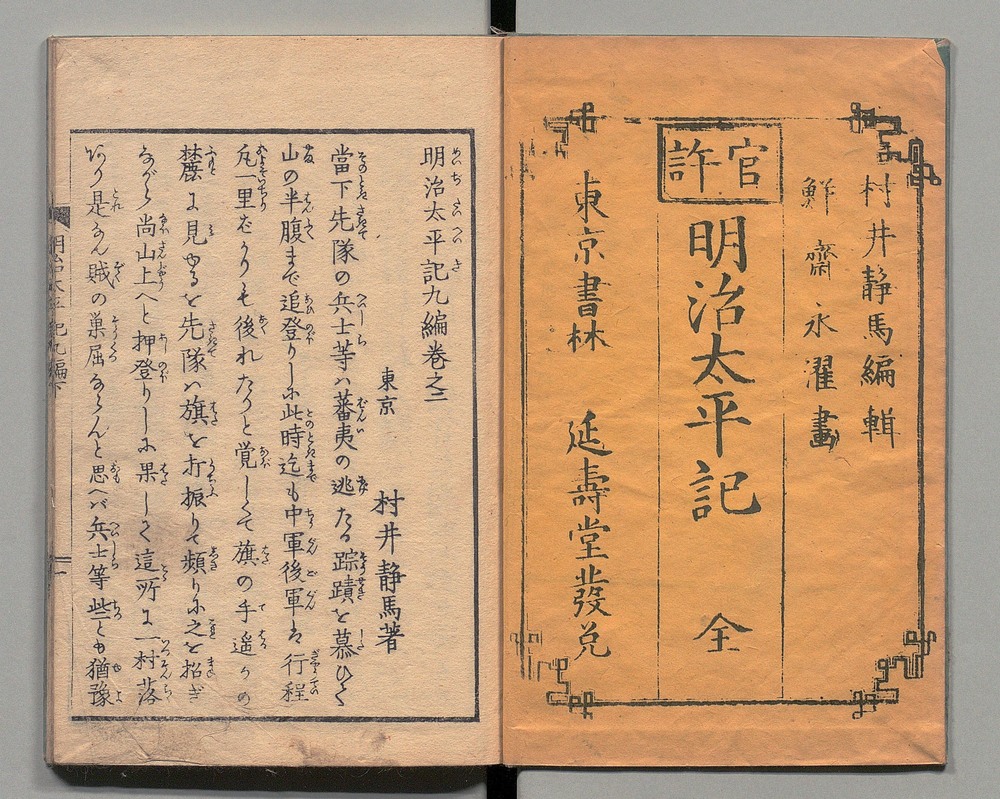 村井靜馬編輯
鮮齋永濯畫
官許
明治太平記 全
東京書林 延壽堂發兌
明治太平記九編巻之二
東京 村井靜馬著
當下先隊の兵士等ハ蕃夷の逃たる踪蹟を慕ひて
山の半腹まで追登りしに此時迄も中軍後軍は行程
凡一里ばかりも後れたりと覚しくて旗の手遥かの
麓に見ゆるを先隊ハ旗を打振りて頻りに之を招ぎ
ながら尚山上へと押登りしに果して這所に一村落
あり是なん賊の巣屈ならんと思へバ兵士等些とも猶豫
明治太平記九編下